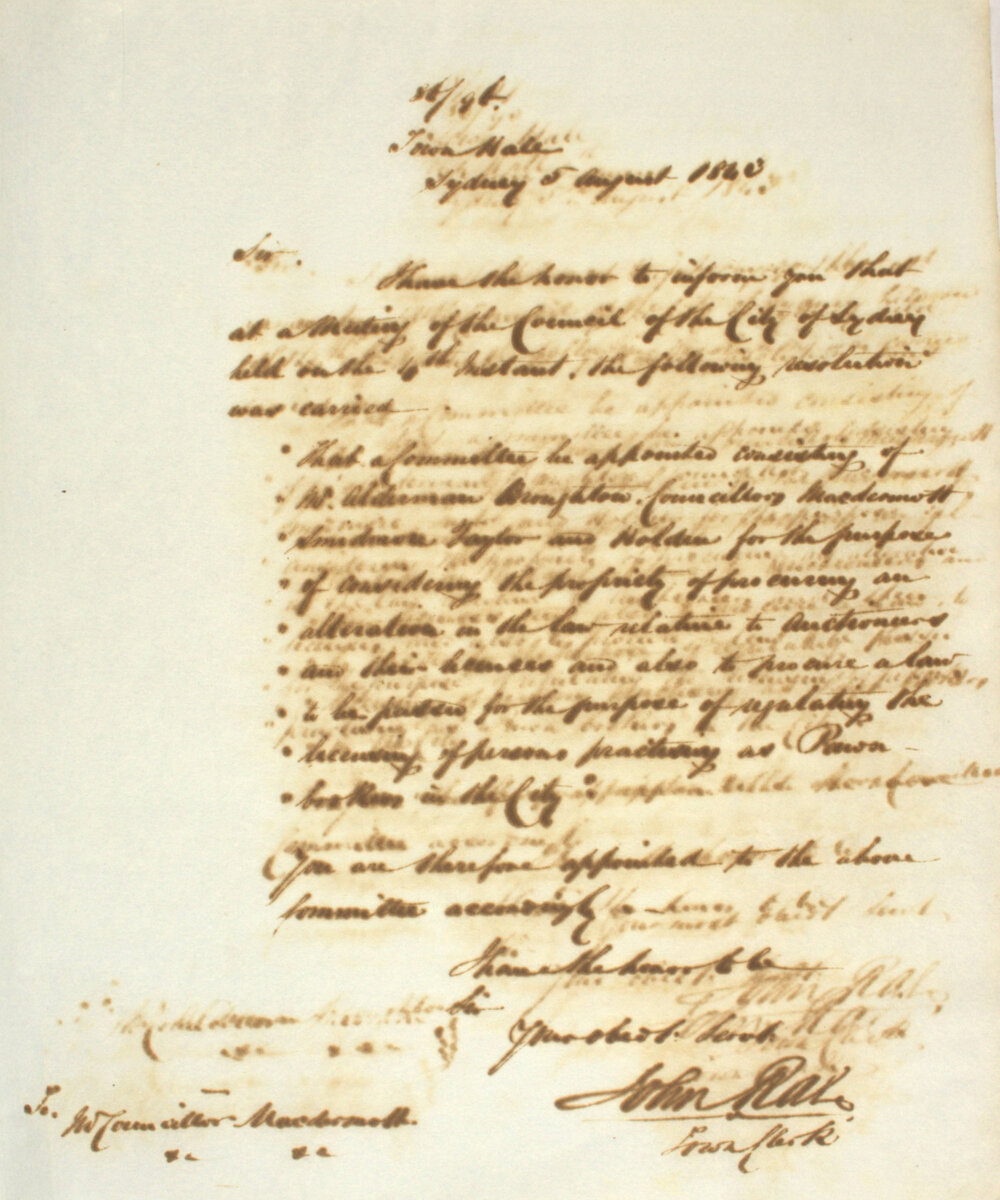 Town Hall
Sydney 5 August 1843
Sir.
I have the honor to inform you that
at a Meeting of the Council of the City of Sydney
held on the 4th Instant, the following resolution
was carried
" That a Committee be appointed consisting of
" Mr. Alderman Broughton, Councillors Macdermott
" Taylor and Holden for the purpose
" of considering the propriety of procuring an
" alteration in the law relative to Auctioneers
" and their licenses and also to procure a law
" to be passed for the purpose of regulating the
" licensing of persons practising as Pawn-
" brokers in the City "
You are therefore appointed to the above
Committee accordingly
I have the honor to be
Sir
Your obedt. Servt.
John Rae
Town Clerk
To.
Mr Councillor Macdermott.
&c &c